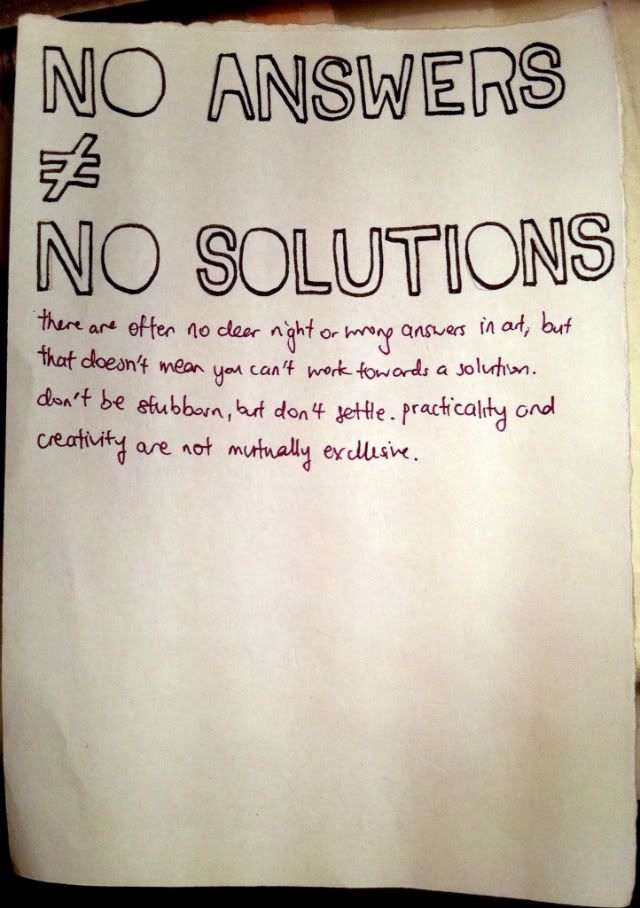 NO ANSWERS
≠
NO SOLUTIONS
there are often no clear right or wrong answers in art, but
that doesn't mean you can't work towards a solution.
don't be stubborn, but don't settle. practicality and
creativity are not mutually exclusive.